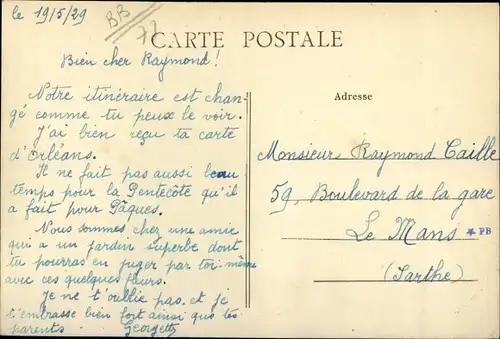 le 19/5/29
BB
72
CARTE POSTALE
Bien cher Raymond!
Adresse
Notre itinéraire est chan-
gé comme tu peux le voir.
J'ai bien reçu ta carte
d'Orléans.
Il ne fait pas aussi beau
temps pour la Pentecôte qu'il
a fait pour Pâques.
Nous sommes chez une amie
qui a un jardin superbe dont
tu pourras en juger par toi-même
avec ces quelques fleurs.
Je ne t'oublie pas et je
t'embrasse bien fort ainsi que tes
parents. Georgette
Monsieur Raymond Caille
59, Boulevard de la gare
Le Mans
* PB
(Sarthe)